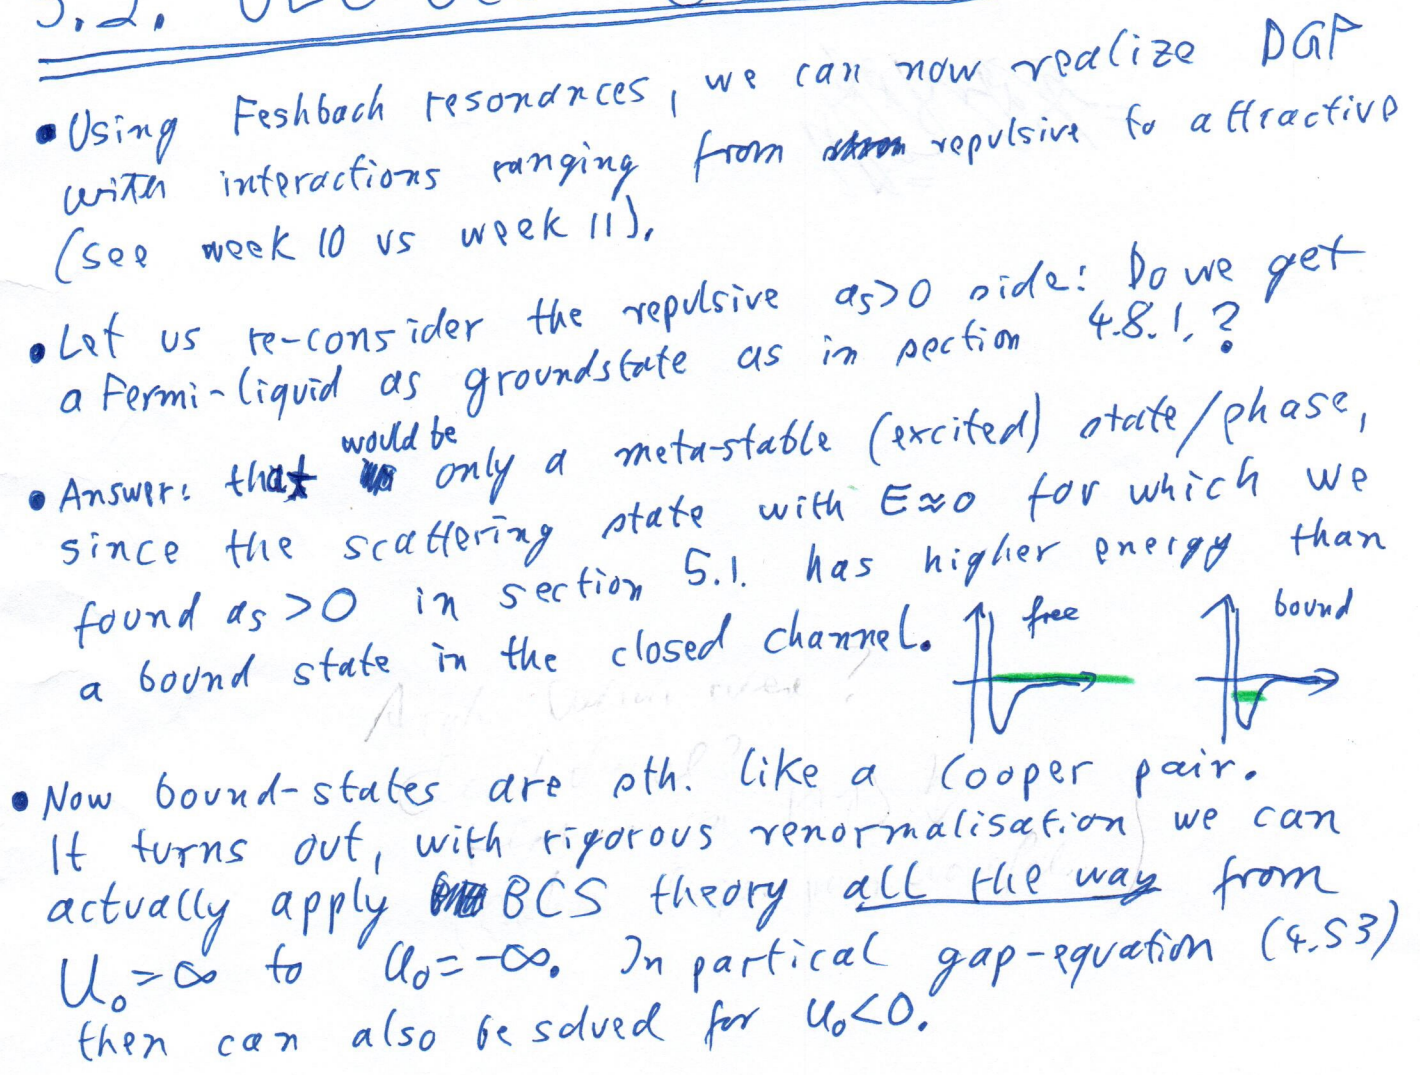 5.2.
• Using Feshbach resonances, we can now realize DGF
with interactions ranging from repulsive to attractive
(see week 10 vs week 11).
• Let us re-consider the repulsive as>0 side: Do we get
a Fermi-liquid as groundstate as in section 4.8.1.?
would be
• Answer: that only a meta-stable (excited) state/phase,
since the scattering state with E≈0 for which we
found as >0 in section 5.1. has higher energy than
a bound state in the closed channel.
free
bound
• Now bound-states are sth. like a Cooper pair.
It turns out, with rigorous renormalisation we can
actually apply BCS theory all the way from
U₀=∞ to U₀=-∞. In partical gap-equation (4.53)
then can also be solved for U₀<0.